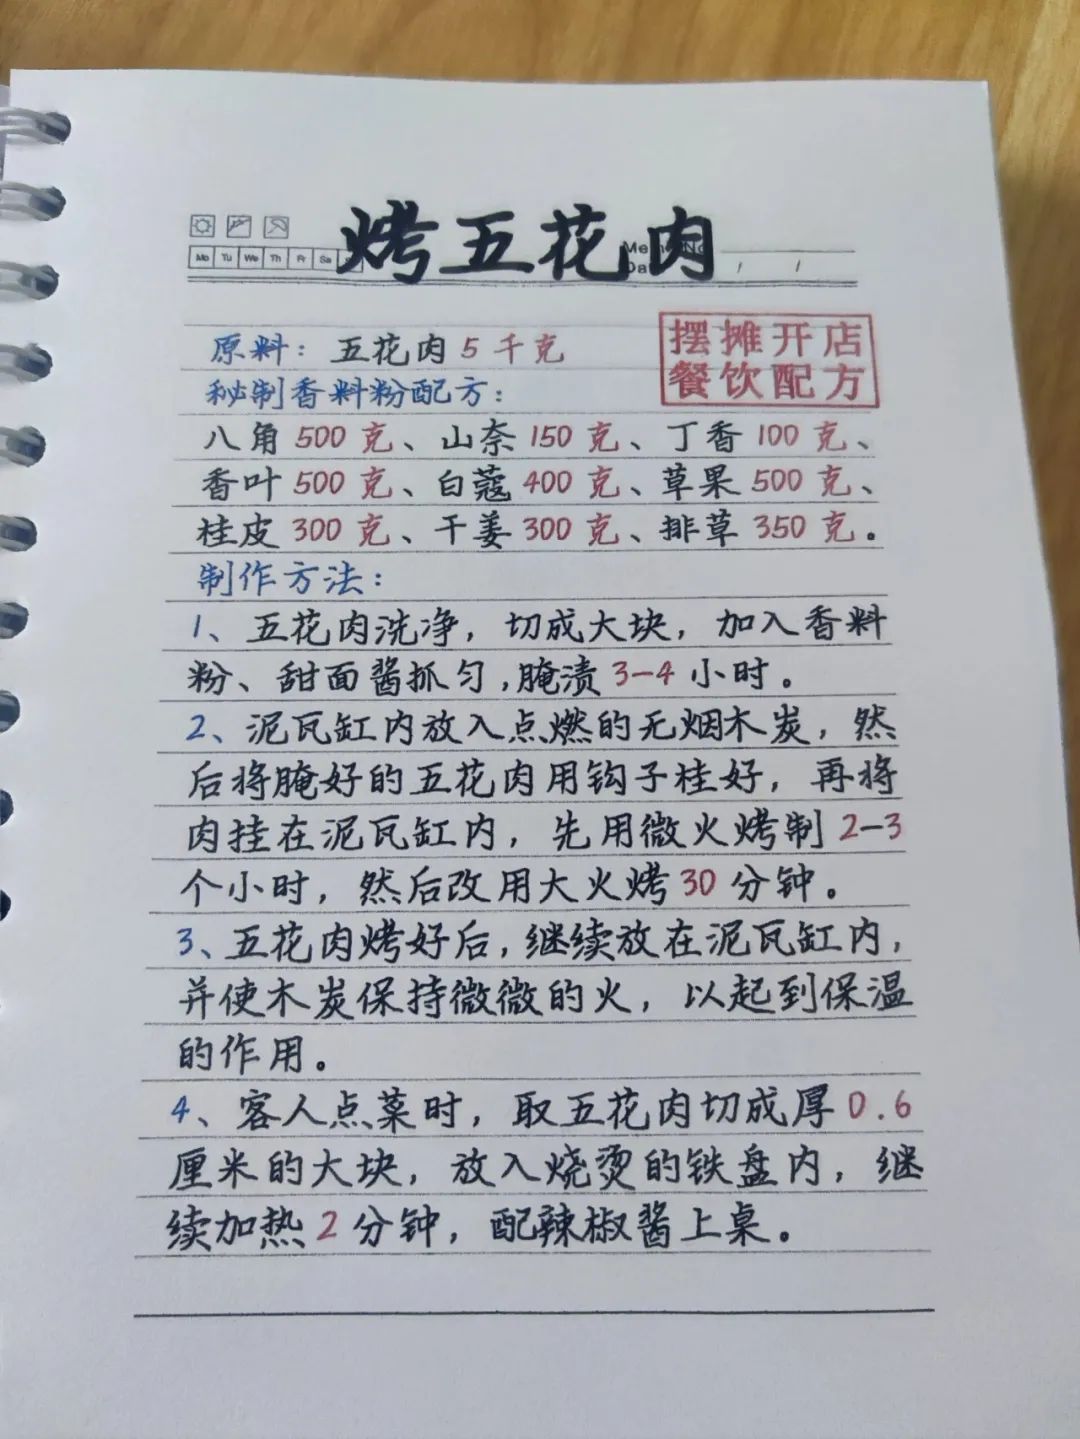 烤五花肉
Mo Tu We Th Fr Sa
原料：五花肉5千克
摆摊开店
餐饮配方
秘制香料粉配方：
八角500克、山奈150克、丁香100克、
香叶500克、白蔻400克、草果500克、
桂皮300克、干姜300克、排草350克。
制作方法：
1、五花肉洗净，切成大块，加入香料
粉、甜面酱抓匀，腌渍3-4小时。
2、泥瓦缸内放入点燃的无烟木炭，然
后将腌好的五花肉用钩子桂好，再将
肉挂在泥瓦缸内，先用微火烤制2-3
个小时，然后改用大火烤30分钟。
3、五花肉烤好后，继续放在泥瓦缸内，
并使木炭保持微微的火，以起到保温
的作用。
4、客人点菜时，取五花肉切成厚0.6
厘米的大块，放入烧烫的铁盘内，继
续加热2分钟，配辣椒酱上桌。